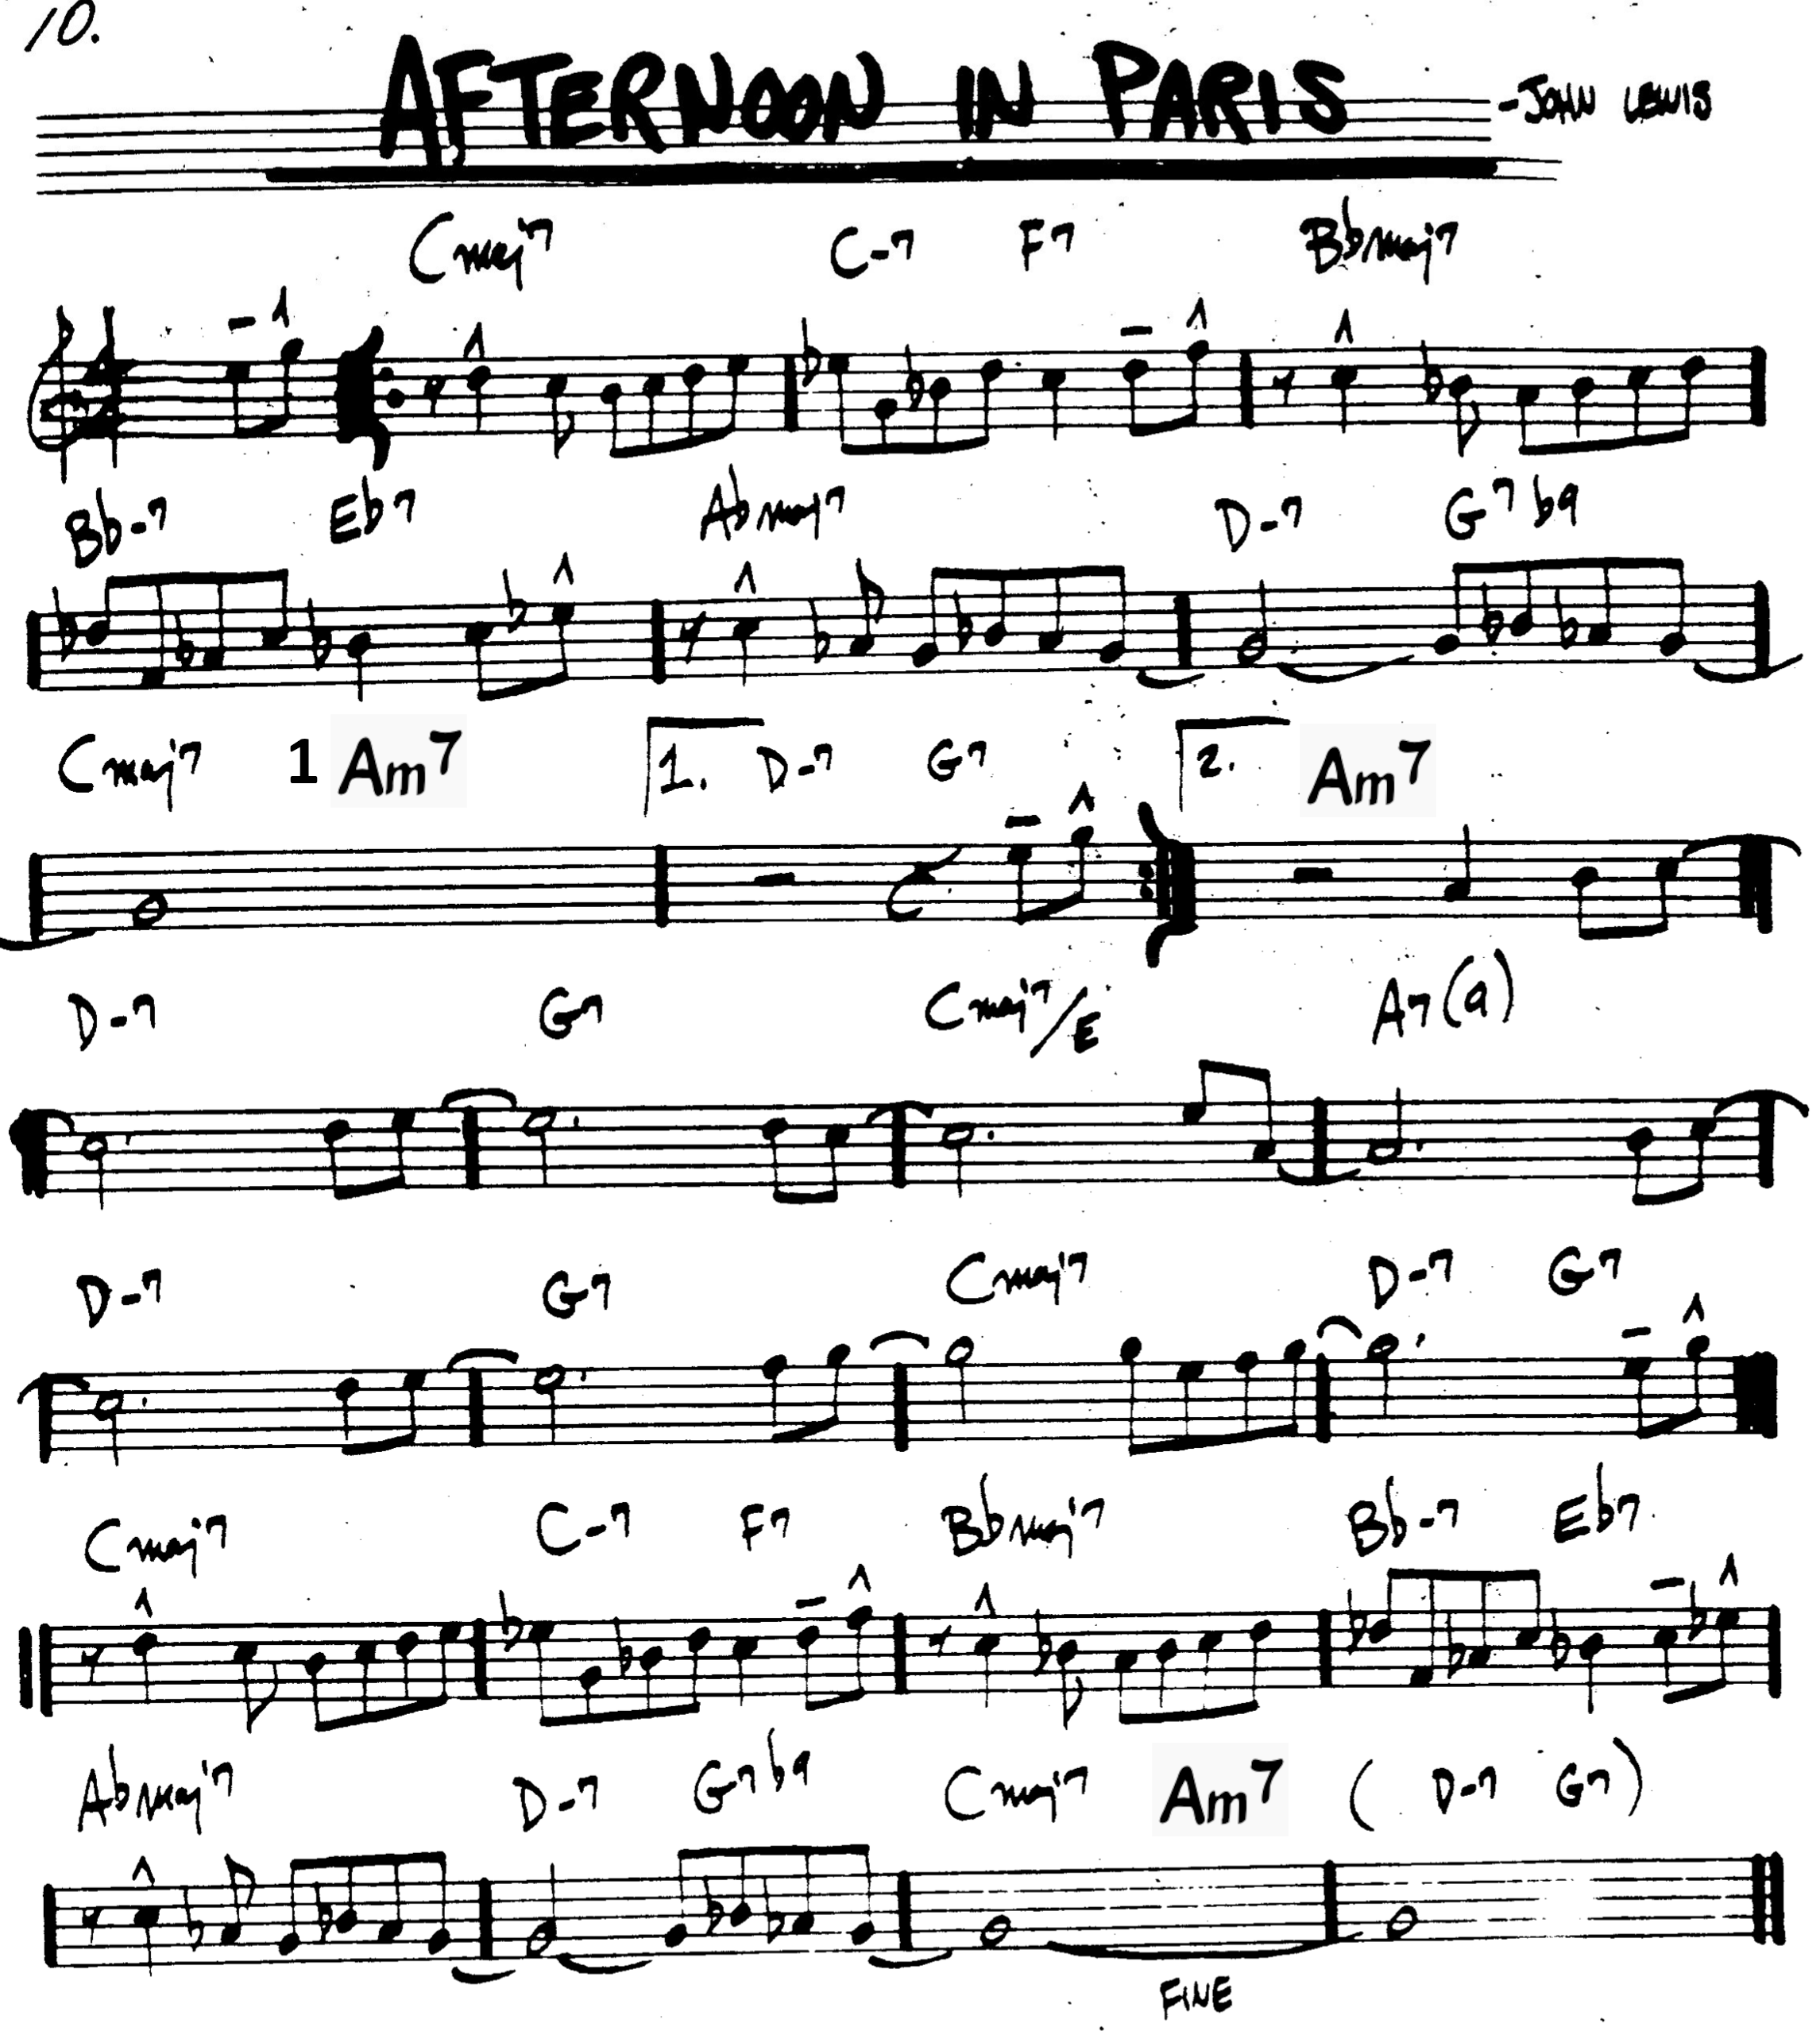 10.
AFTERNOON IN PARIS
-JOHN LEWIS
Cmaj7 C-7 F7 Bbmaj7
Bb-7 Eb7 Abmaj7 D-7 G7b9
Cmaj7 1 Am7 1. D-7 G7 2. Am7
D-7 G7 Cmaj7/E A7(9)
D-7 G7 Cmaj7 D-7 G7
Cmaj7 C-7 F7 Bbmaj7 Bb-7 Eb7
Abmaj7 D-7 G7b9 Cmaj7 Am7 ( D-7 G7)
FINE